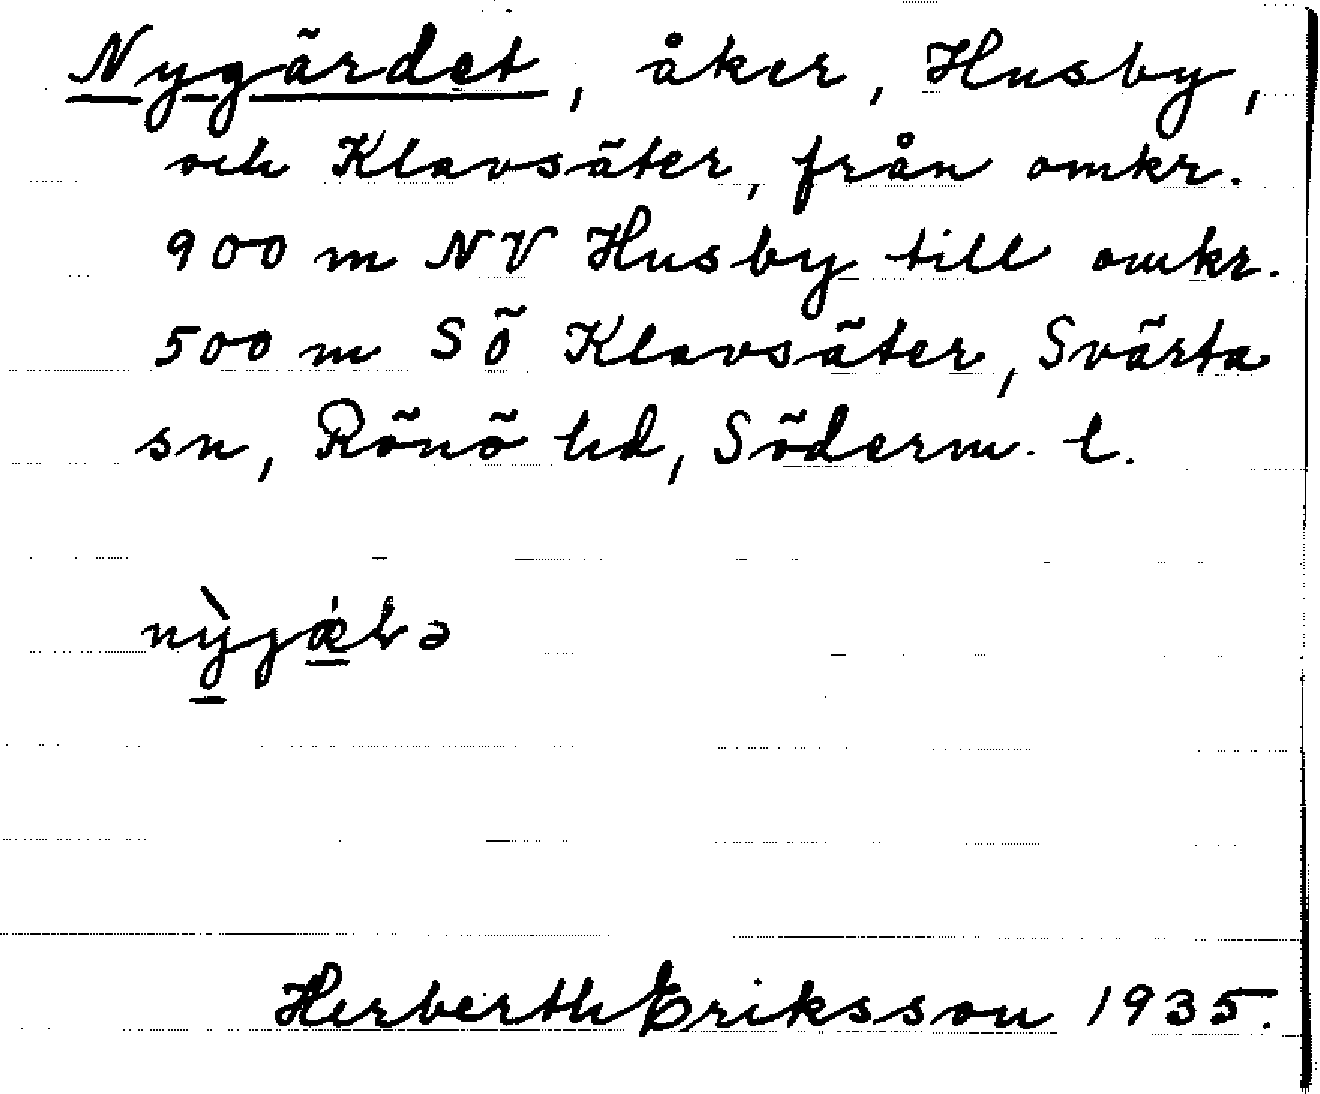 Nygärdet, åker, Husby,
och Klavsäter, från omkr.
900 m NV Husby till omkr.
500 m SÖ Klavsäter, Svärta
sn, Rönö hd, Söderm. l.
Herberth Eriksson 1935.